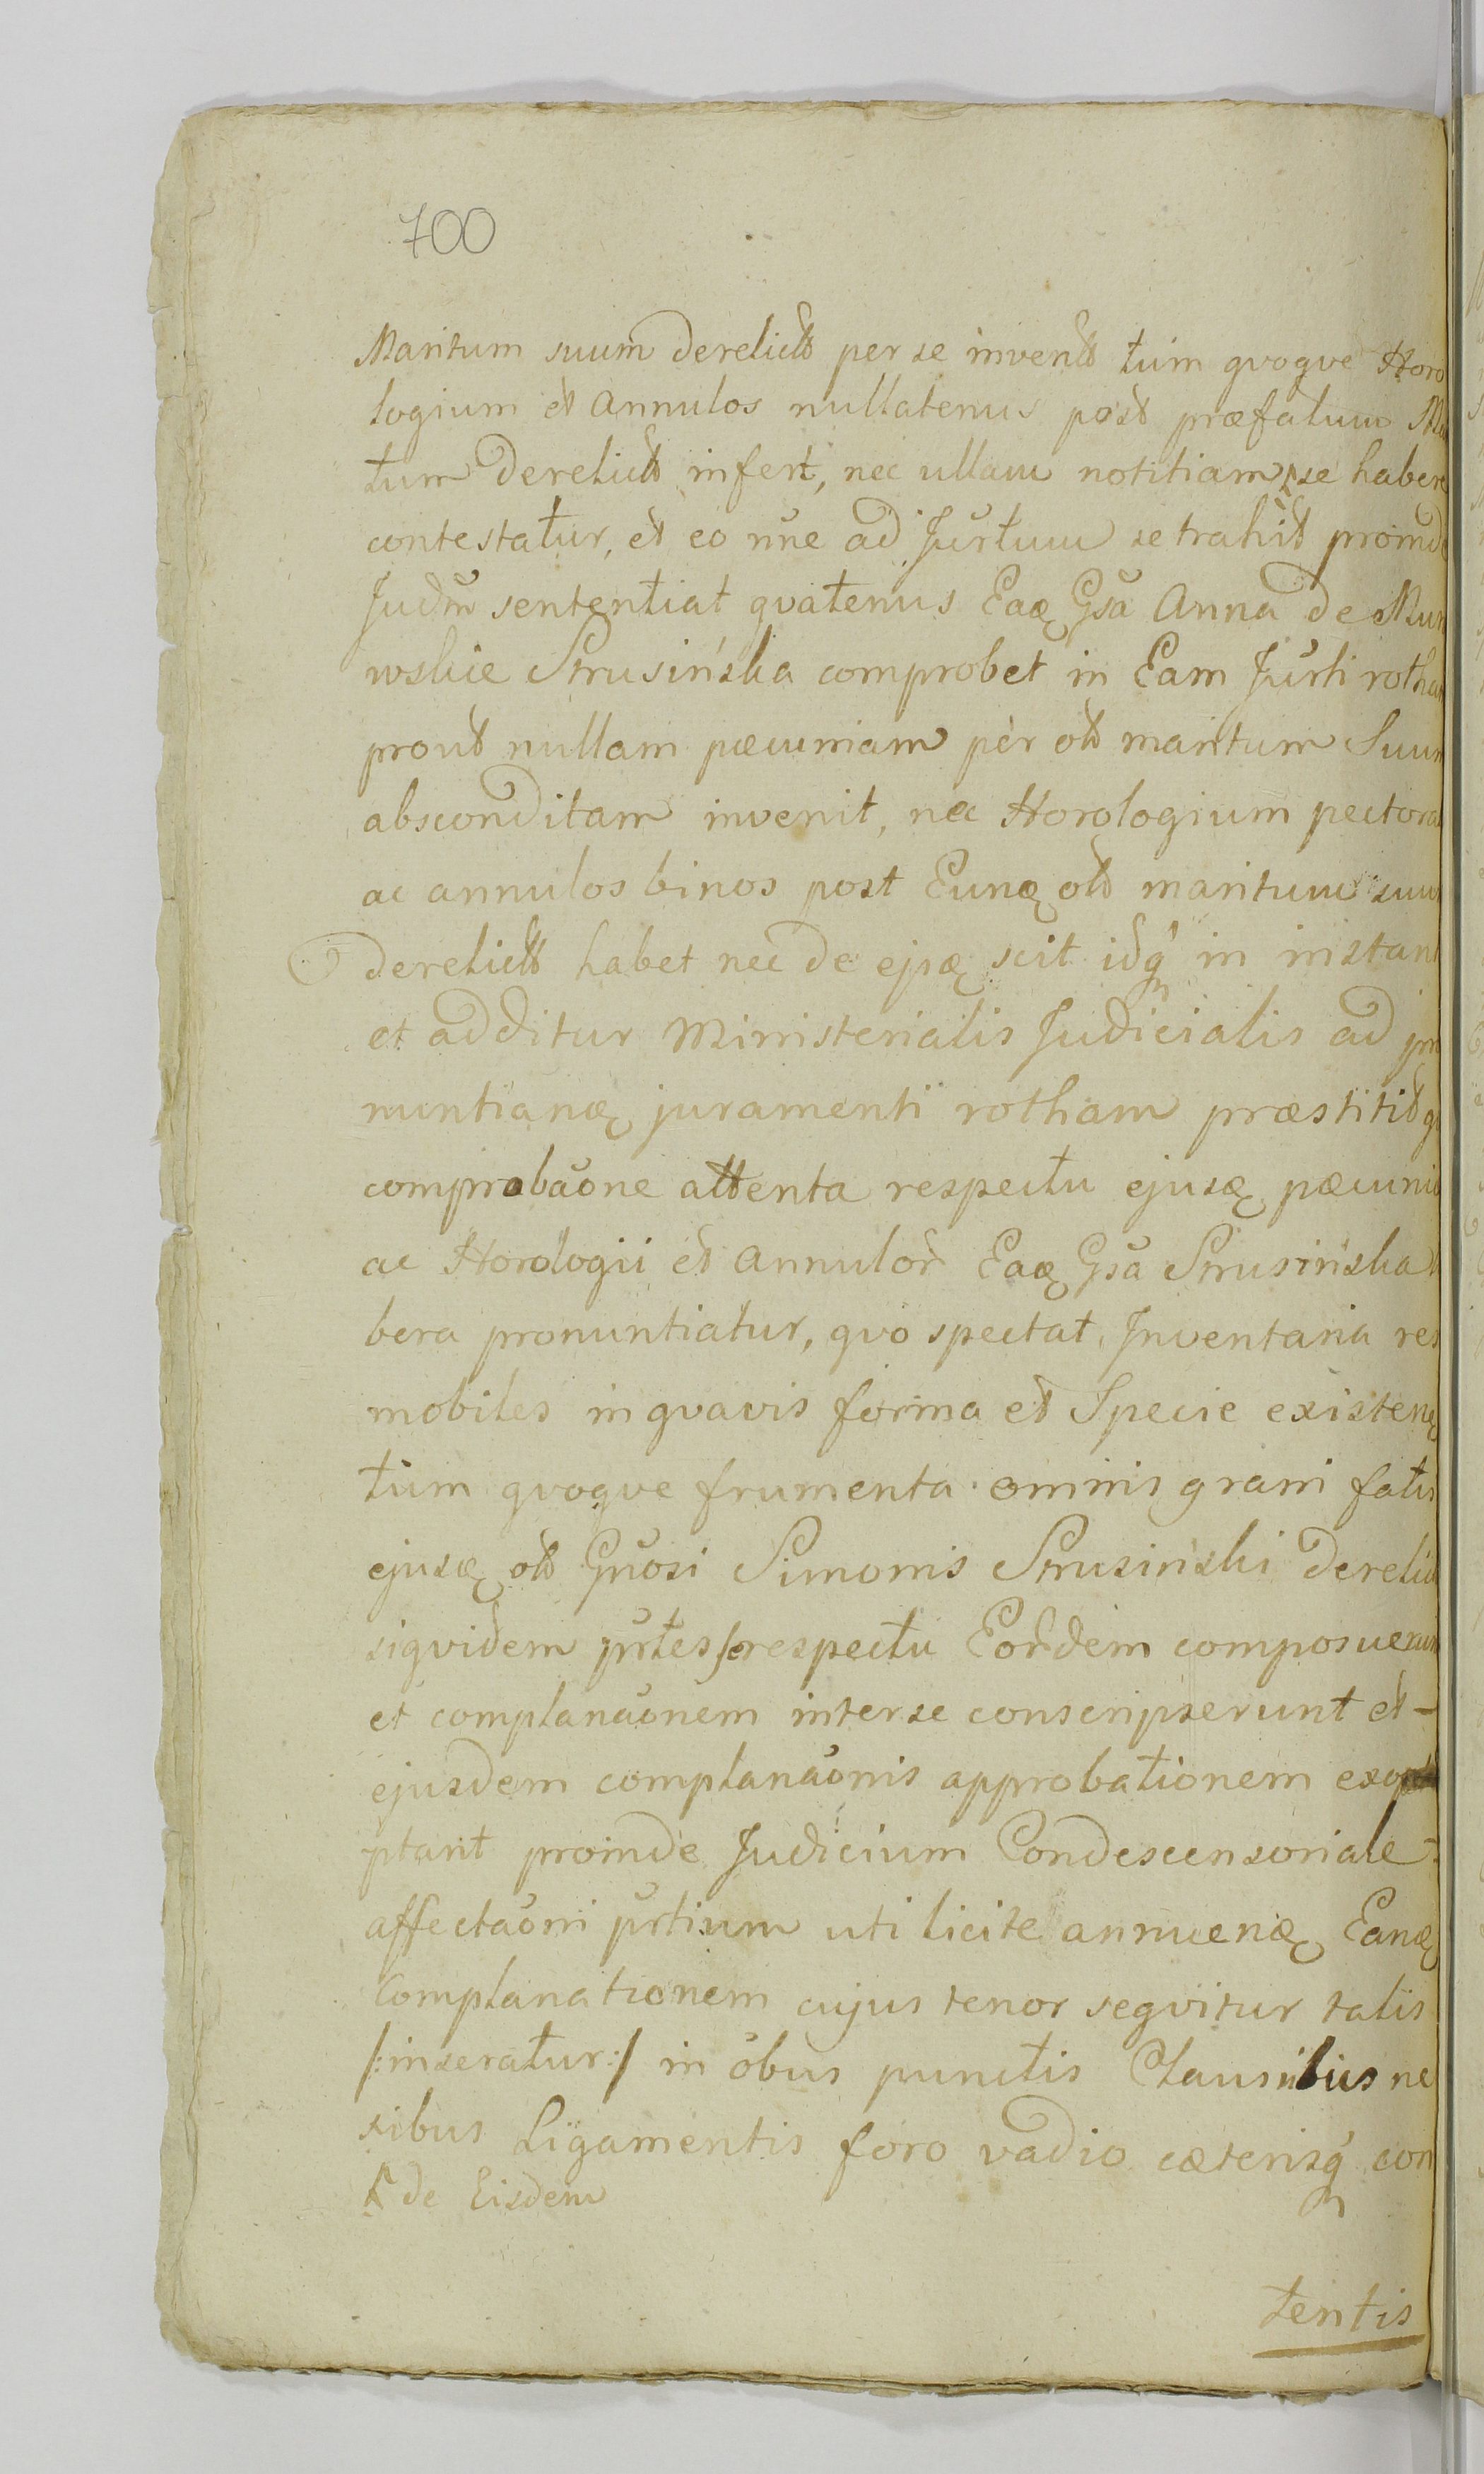 700
Maritum suum derelictt per se invent tum qvoqve Horo
logium et Annulos nullatenus post præfatum Ma
tum derelictt infert, nec ullam notitiam se habere
contestatur, et eo nñe ad Jurtum se trahit proinde
Judm̃ sententiat qvatenus Eaꝫ Gsã Anna de Mur
wskie Strusińska comprobet in Eam Jurti rotham
prout nullam pæcuniam per olt maritum Suum
absconditam invenit, nec Horologium pectoral
ac annulos binos post Eunꝫ olt maritum suum
derelictt habet nec de ejsꝫ scit idq̃ in instanti
et additur Ministerialis Judicialis ad pro
nuntianꝫ juramenti rotham præstitaq
comprobaõne attenta respectu ejusꝫ pæcuniæ
ac Horologii et Annulor̃ Eaꝫ Gsã Strusińska
bera pronuntiatur, qvo spectat Inventaria res
mobiles in qvavis forma et Specie existenꝫ
tum qvoqve frumenta omnis grani fatis
ejusꝫ olt Gñosi Simonis Strusiński derelict
siqvidem pr̃tes respectu Eor̃dem composuerunt
et complanaõnem inter se conscripserunt et -
ejusdem complanaõnis approbationem exop
ptant proinde Judicium Condescensoriale
affectaõni pr̃tium uti licite annuenꝫ Eanꝫ
Complanationem cujus tenor seqvitur talis
/:inseratur:/ in õbus punctis Clausulibus ne
xibus Ligamentis foro vadio cæterisq̃ con
de Eisdem
tentis